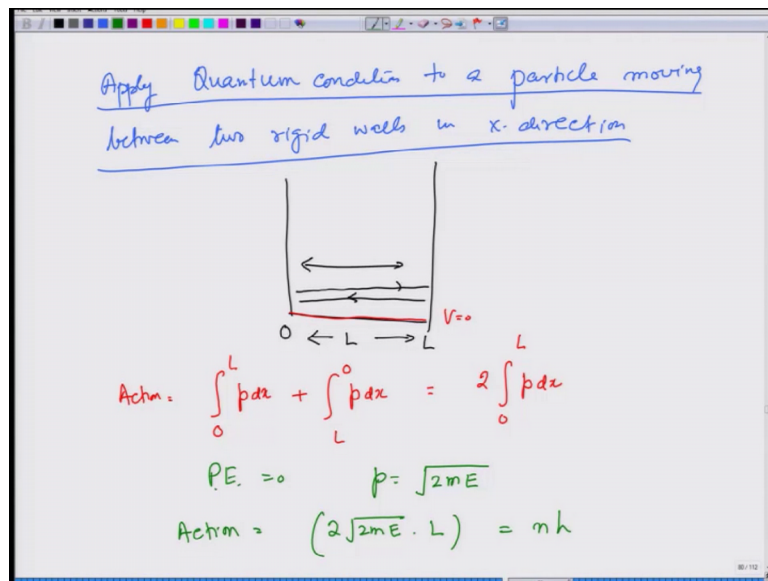 Apply Quantum condition to a particle moving
between two rigid walls in x-direction
V=0
0 ← L → L
Action = ∫₀ᴸ pdx + ∫_L⁰ pdx = 2 ∫₀ᴸ pdx
P.E. =0 p= √2mE
Action = (2√2mE . L) = nh
80/112